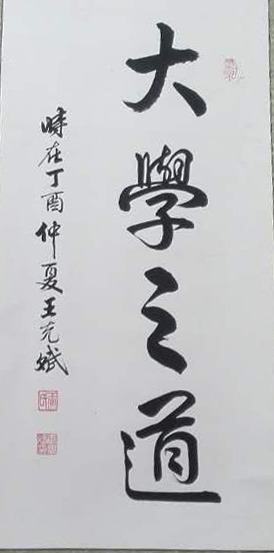 大學之道
時在丁酉仲夏王克斌